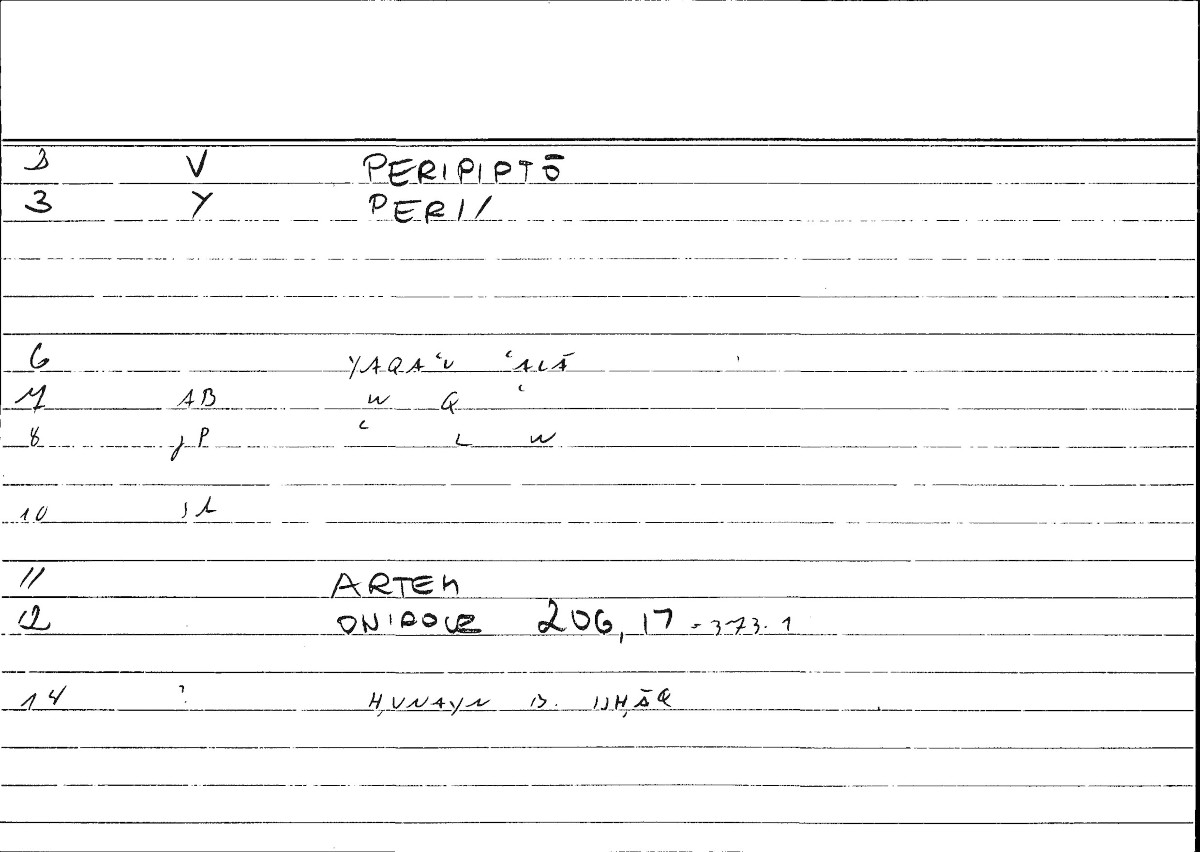 2 V PERIPIPTŌ
3 Y PERI/
6 YAQAʿU ʿALĀ
7 AB W Q ʿ
8 JP ʿ L W
10 SL
11 ARTEM
12 ONIROCR 206, 17 - 373.1
14 ? ḤUNAYN B. ISḤĀQ